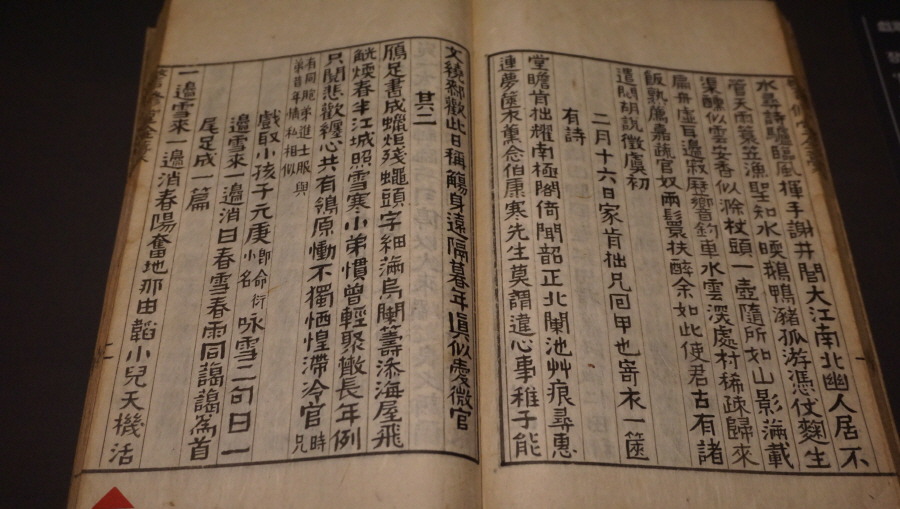 水尋詩驢臨風揮手謝井間大江南北幽人居不
管天雨簑笠漁聖知水暝鵝鴨豬孤游憑仗麴生
渠醲似雲香似滁杖頭一壺隨所如山影滿載
扁舟虛耳邊寂歷響釣車水雲深處村稀疎歸來
飯熟薦嘉蔬官奴兩鬟扶醉余如此使君古有諸
遣閑胡說徵虞初
二月十六日家肯拙兄回甲也寄衣一篋
有詩
堂瞻肯拙耀南極閣倚聞韶正北闌池艸痕尋惠
連夢篋衣薰念伯康寒先生莫謂違心事稚子能
文繞郄歡此日稱觴身遠隔暮年眞似處微官
其二
鴈足書成蠟炬殘蠅頭字細滿烏闌籌添海屋飛
觥煖春半江城照雪寒小弟慣曾輕聚散長年例
只閱悲歡纏心共有鴒原慟不獨恓惶滯冷官時兄
有同胞弟進士服與
弟昔年橋私相似
戲取小孩子元庚即命衍小名咏雪二句曰一
邊雪來一邊消曰春雪春雨同謁謁爲首
尾足成一篇
一邊雪來一邊消春陽奮地那由韜小兒天機活